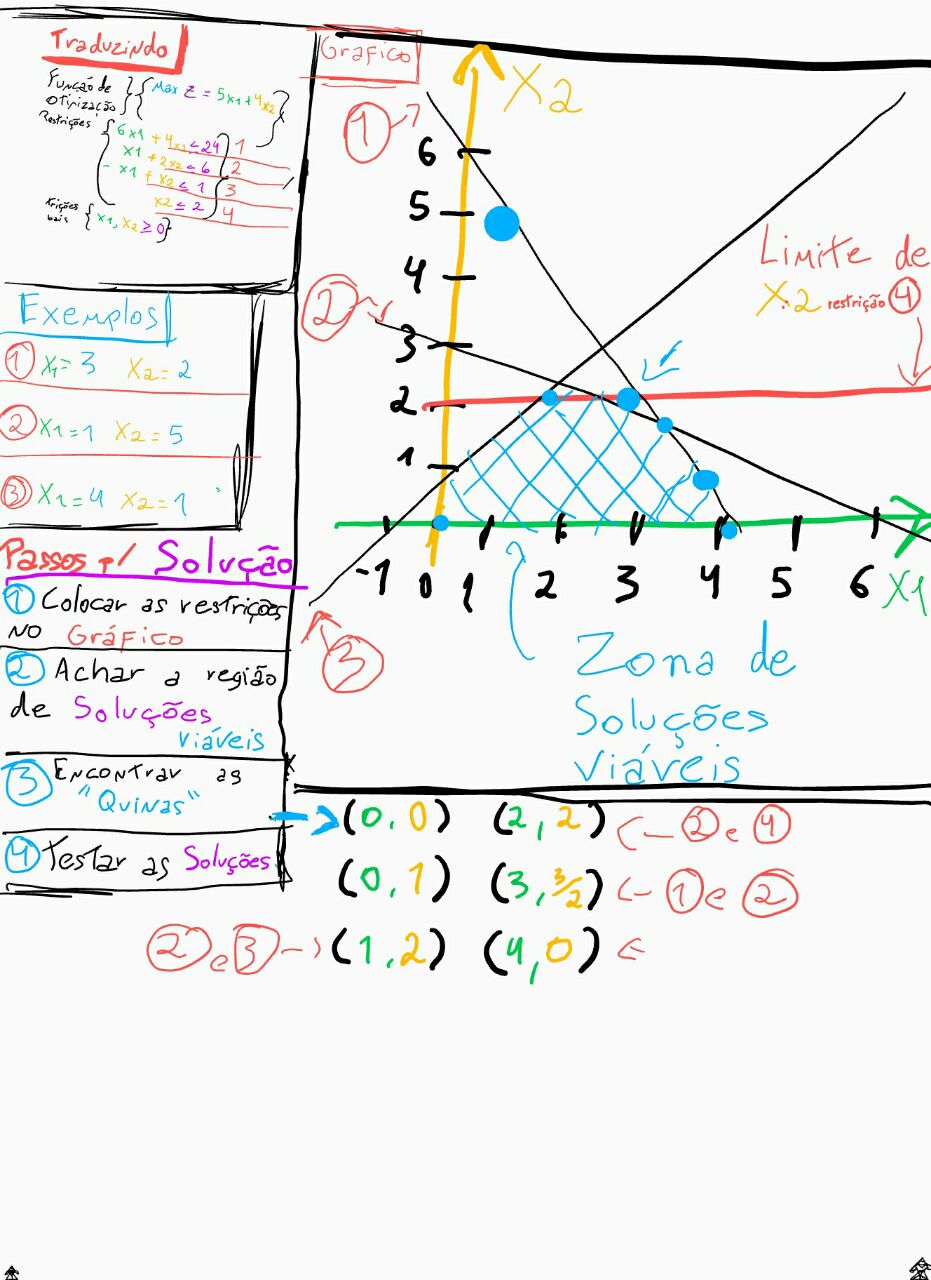 Traduzindo
Função de
Otimização
Max Z = 5x1 + 4x2
Restrições
6x1 + 4x2 ≤ 24 1
x1 + 2x2 ≤ 6 2
- x1 + x2 ≤ 1 3
x2 ≤ 2 4
trições
bais
x1, x2 ≥ 0
Exemplos
1 X1= 3 X2= 2
2 X1=1 X2=5
3 X1=4 X2=1
Passos p/ Solução
1 Colocar as restrições
no Gráfico
2 Achar a região
de Soluções
viáveis
3 Encontrar as
"Quinas"
4 Testar as Soluções
Gráfico
X2
1
6
5
4
2
3
2
1
Limite de
X2 restrição 4
-1 0 1 2 3 4 5 6 X1
3
Zona de
Soluções
Viáveis
(0,0) (2,2) 2 e 4
(0,1) (3,3/2) 1 e 2
2 e 3 (1,2) (4,0)